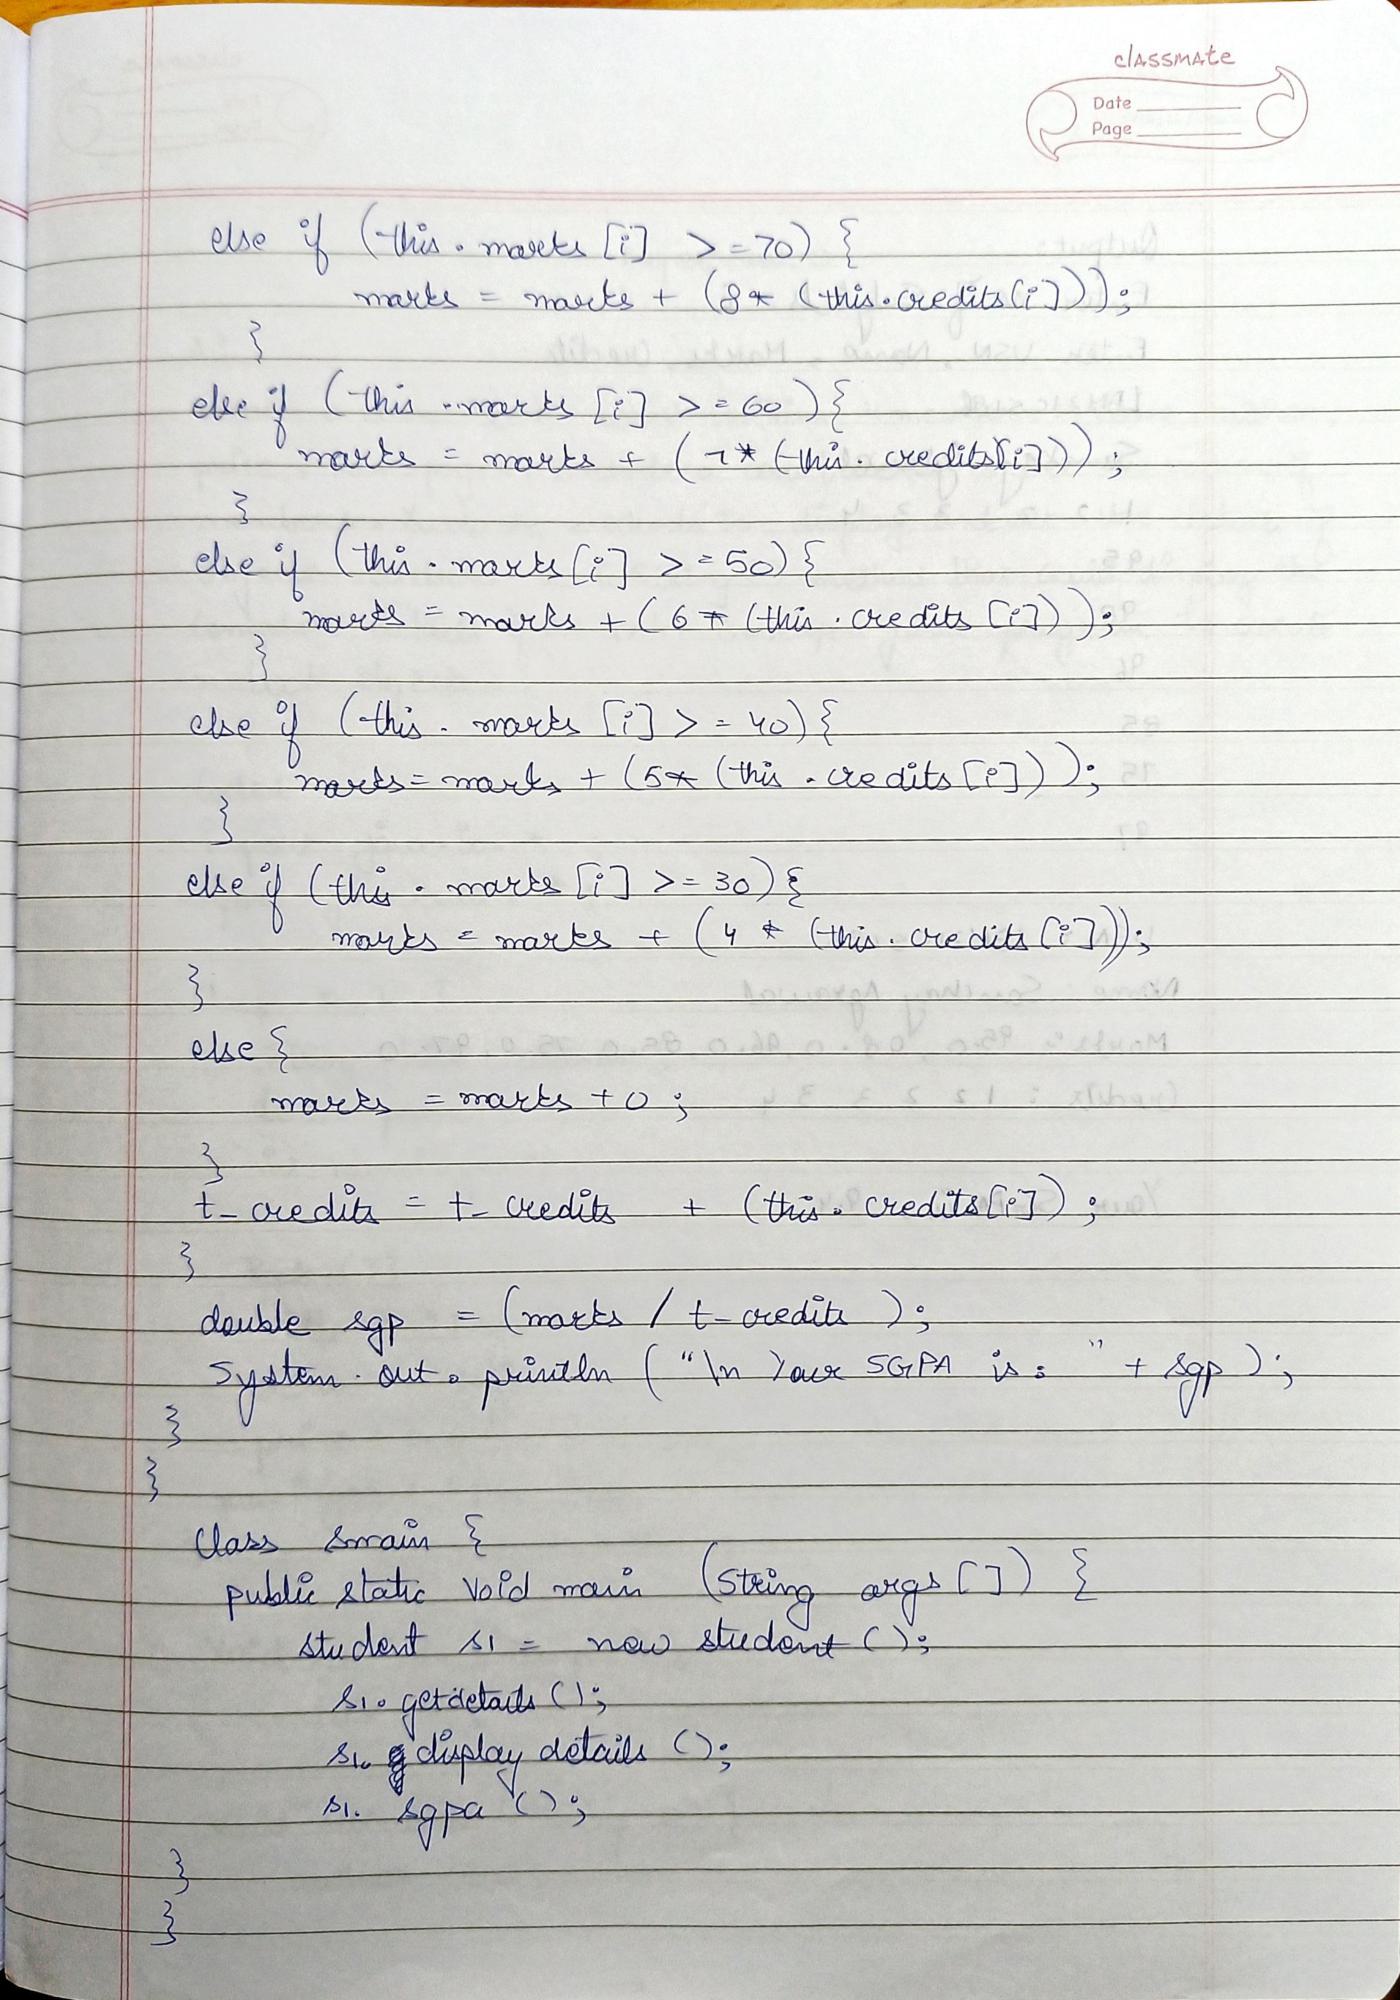 classmate
Date
Page
else if (this.marks[i] >=70) {
marks = marks + (8* (this.credits[i]));
}
else if (this.marks[i] >=60){
marks = marks + (7* (this.credits[i]));
}
else if (this.marks[i] >=50){
marks = marks + (6* (this.credits[i]));
}
else if (this.marks[i] >=40){
marks = marks + (5* (this.credits[i]));
}
else if (this.marks[i] >=30){
marks = marks + (4 * (this.credits[i]));
}
else {
marks = marks +0;
}
t_credits = t_credits + (this.credits[i]);
}
double sgp = (marks / t_credits);
System.out.println ("\n Your SGPA is: " + sgp);
}
}
class smain {
public static void main (String args[]) {
student s1 = new student();
s1.getdetails();
s1.displaydetails();
s1.sgpa();
}
}